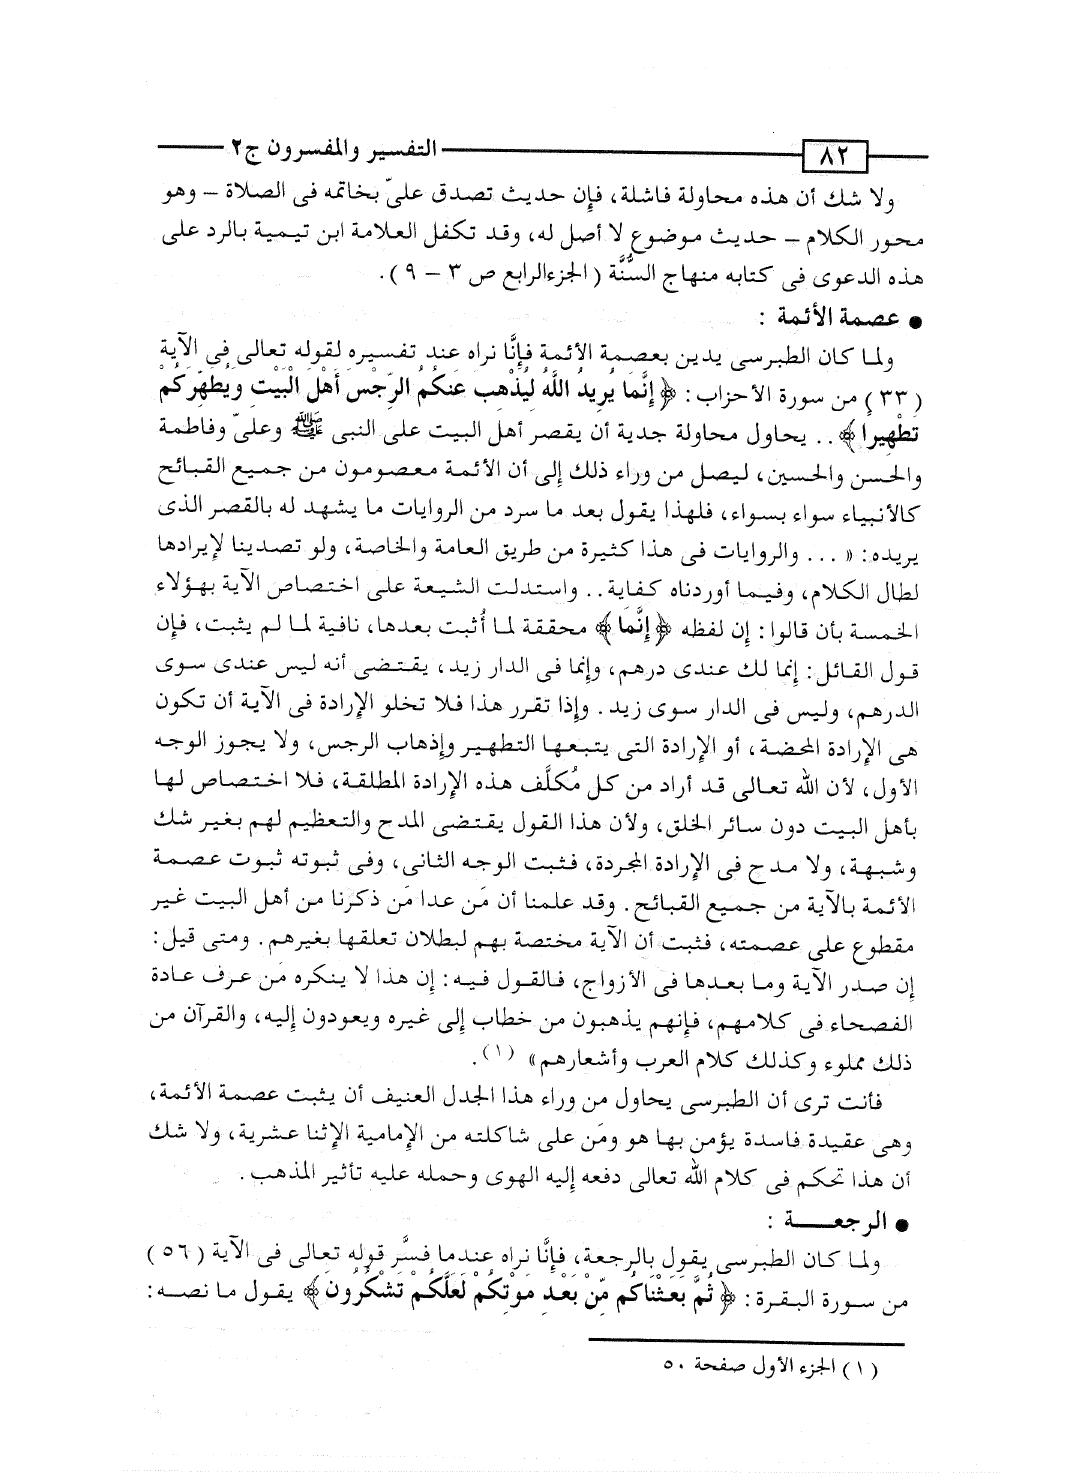 ٨٢ التفسير والمفسرون ج٢
ولا شك أن هذه محاولة فاشلة، فإن حديث تصدق علىّ بخاتمه فى الصلاة – وهو
محور الكلام – حديث موضوع لا أصل له، وقد تكفل العلامة ابن تيمية بالرد على
هذه الدعوى فى كتابه منهاج السُّنَّة (الجزءالرابع ص ٣ – ٩).
● عصمة الأئمة :
ولما كان الطبرسى يدين بعصمة الأئمة فإنَّا نراه عند تفسيره لقوله تعالى فى الآية
(٣٣) من سورة الأحزاب: ﴿ إِنَّمَا يُرِيدُ اللَّهُ لِيُذْهِبَ عَنكُمُ الرِّجْسَ أَهْلَ الْبَيْتِ وَيُطَهِّرَكُمْ
تَطْهِيرًا ﴾ .. يحاول محاولة جدية أن يقصر أهل البيت على النبى ﷺ وعلىّ وفاطمة
والحسن والحسين، ليصل من وراء ذلك إلى أن الأئمة معصومون من جميع القبائح
كالأنبياء سواء بسواء، فلهذا يقول بعد ما سرد من الروايات ما يشهد له بالقصر الذى
يريده: « ... والروايات فى هذا كثيرة من طريق العامة والخاصة، ولو تصدينا لإيرادها
لطال الكلام، وفيما أوردناه كفاية.. واستدلت الشيعة على اختصاص الآية بهؤلاء
الخمسة بأن قالوا: إن لفظه ﴿ إِنَّمَا ﴾ محققة لما أُثبت بعدها، نافية لما لم يثبت، فإن
قول القائل: إنما لك عندى درهم، وإنما فى الدار زيد، يقتضى أنه ليس عندى سوى
الدرهم، وليس فى الدار سوى زيد. وإذا تقرر هذا فلا تخلو الإرادة فى الآية أن تكون
هى الإرادة المحضة، أو الإرادة التى يتبعها التطهير وإذهاب الرجس، ولا يجوز الوجه
الأول، لأن الله تعالى قد أراد من كل مُكلَّف هذه الإرادة المطلقة، فلا اختصاص لها
بأهل البيت دون سائر الخلق، ولأن هذا القول يقتضى المدح والتعظيم لهم بغير شك
وشبهة، ولا مدح فى الإرادة المجردة، فثبت الوجه الثانى، وفى ثبوته ثبوت عصمة
الأئمة بالآية من جميع القبائح. وقد علمنا أن مَن عدا مَن ذكرنا من أهل البيت غير
مقطوع على عصمته، فثبت أن الآية مختصة بهم لبطلان تعلقها بغيرهم. ومتى قيل:
إن صدر الآية وما بعدها فى الأزواج، فالقول فيه: إن هذا لا ينكره مَن عرف عادة
الفصحاء فى كلامهم، فإنهم يذهبون من خطاب إلى غيره ويعودون إليه، والقرآن من
ذلك مملوء وكذلك كلام العرب وأشعارهم» (١).
فأنت ترى أن الطبرسى يحاول من وراء هذا الجدل العنيف أن يثبت عصمة الأئمة،
وهى عقيدة فاسدة يؤمن بها هو ومَن على شاكلته من الإمامية الإثنا عشرية، ولا شك
أن هذا تحكم فى كلام الله تعالى دفعه إليه الهوى وحمله عليه تأثير المذهب.
● الرجعـــة :
ولما كان الطبرسى يقول بالرجعة، فإنَّا نراه عندما فسَّر قوله تعالى فى الآية (٥٦)
من سورة البقرة: ﴿ ثُمَّ بَعَثْنَاكُم مِّنْ بَعْدِ مَوْتِكُمْ لَعَلَّكُمْ تَشْكُرُونَ ﴾ يقول ما نصه:
(١) الجزء الأول صفحة ٥٠